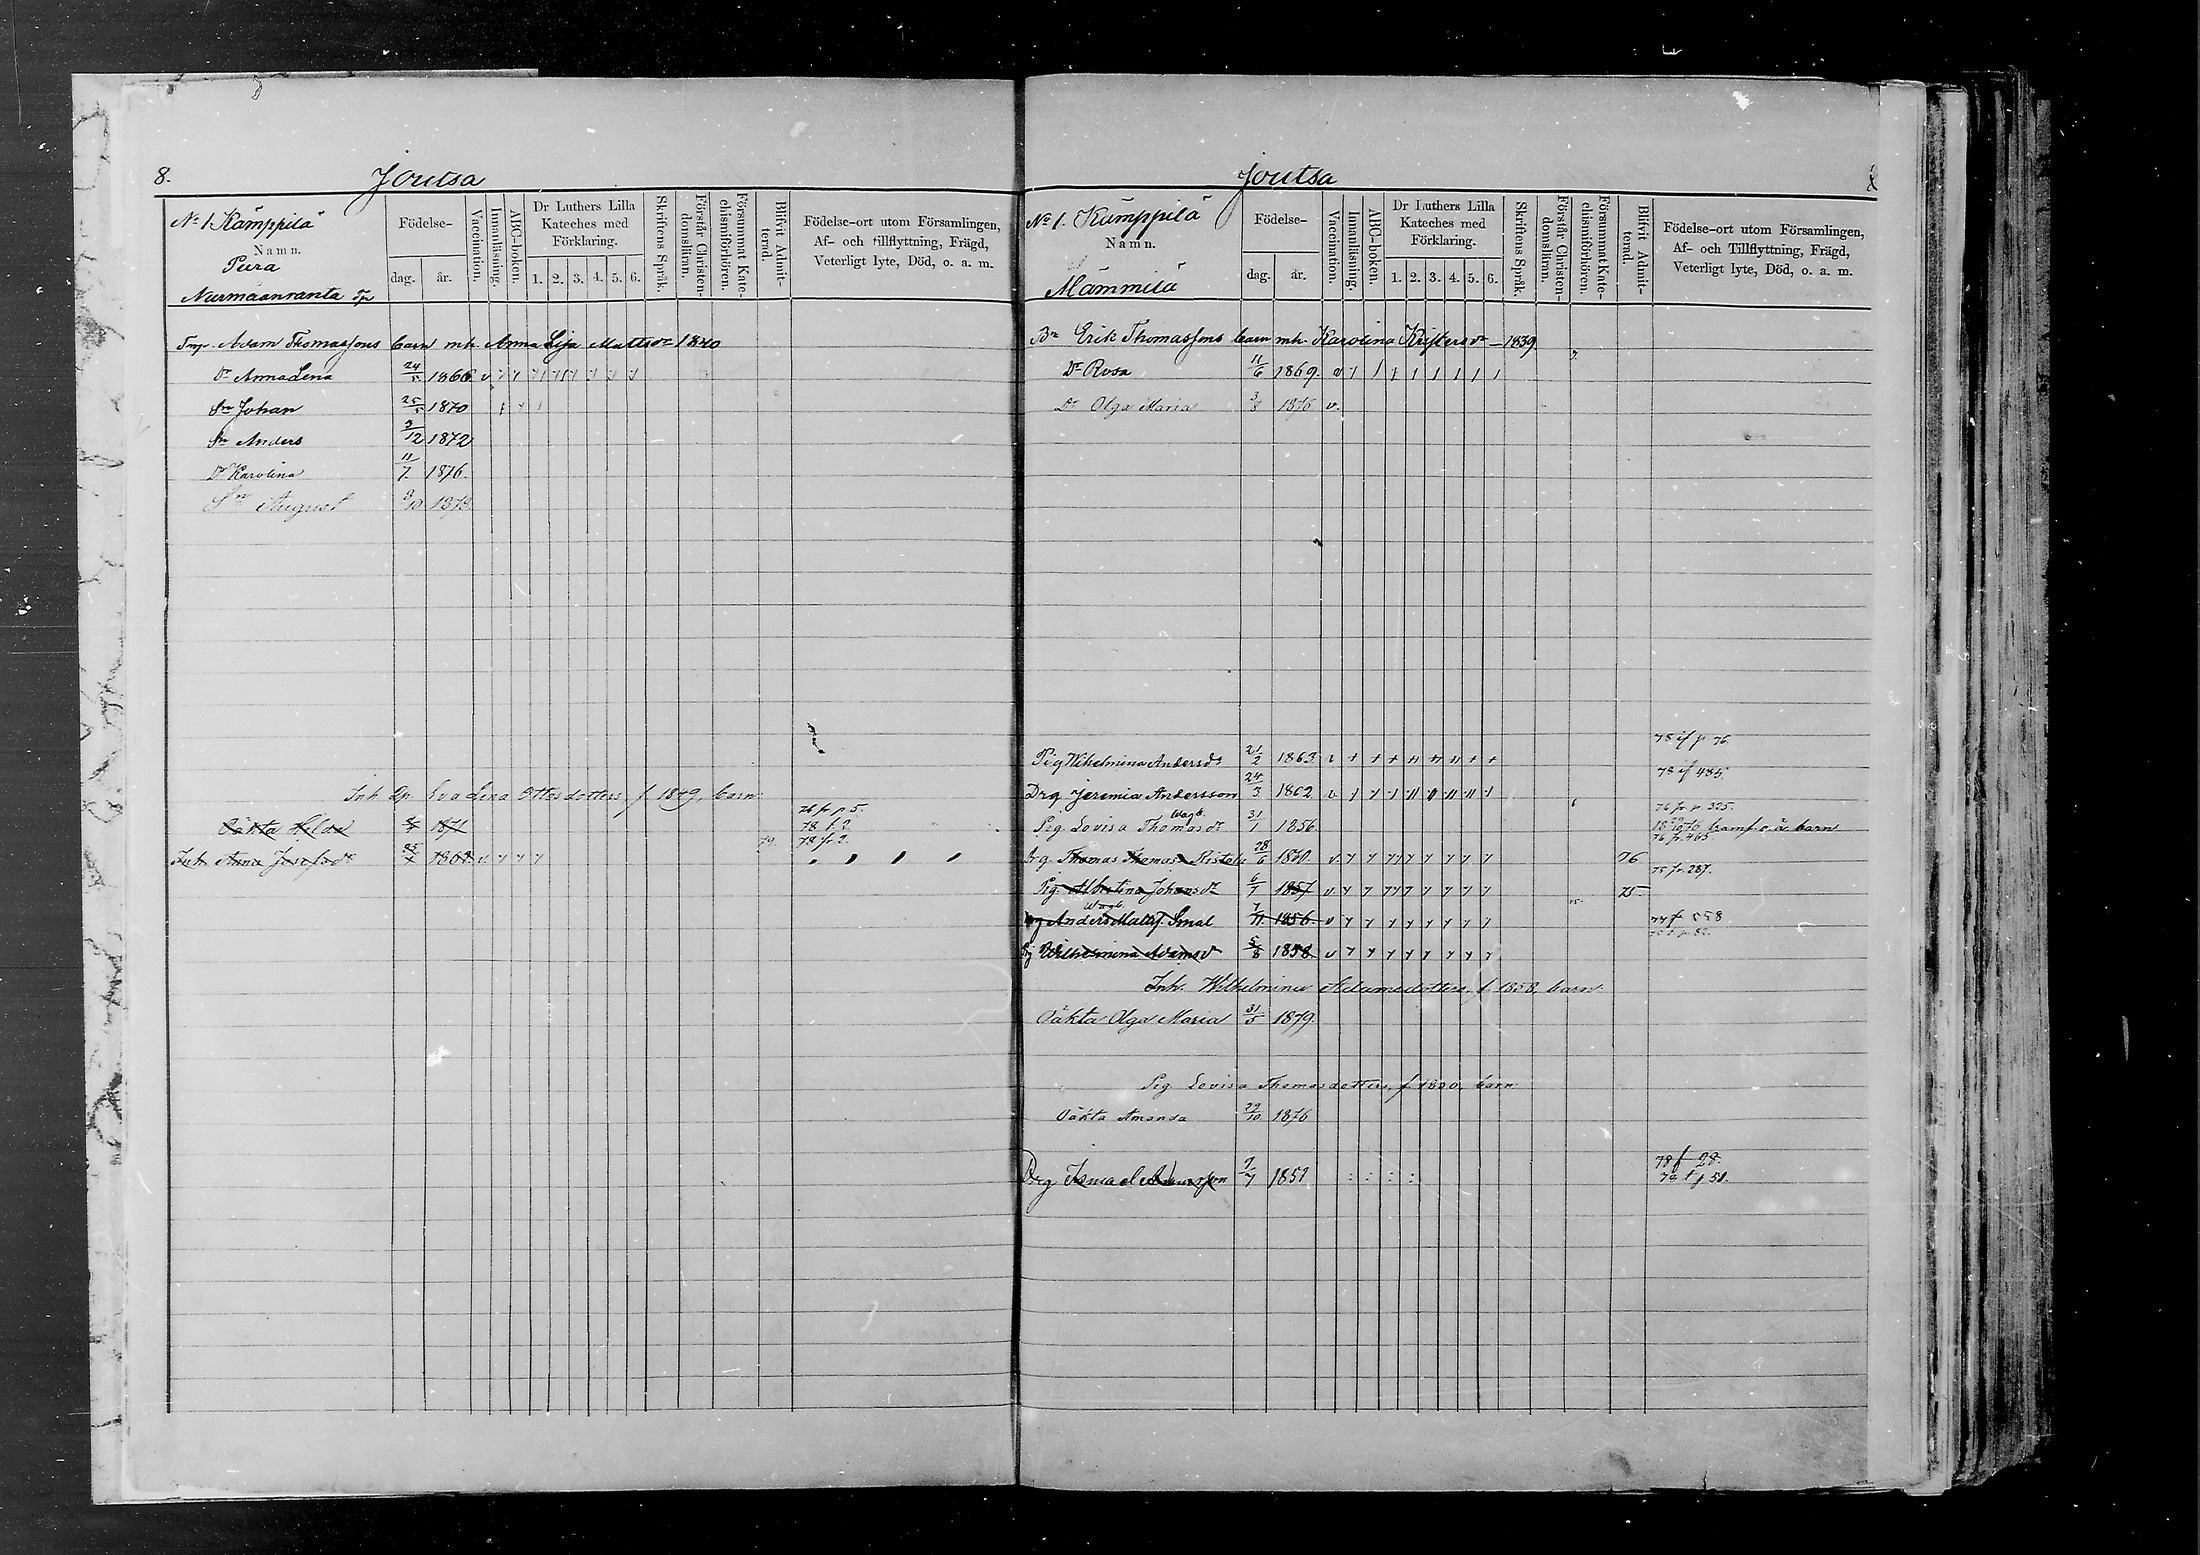 8.
Joutsa
No 1. Kämppilä
Namn.
Pura
Nurmaanranta Tp
Födelse-
dag. år.
Vaccination.
Innanläsning.
ABC-boken.
Dr Luthers Lilla Kateches med Förklaring.
1. 2. 3. 4. 5. 6.
Skriftens Språk.
Förstår Christendomsläran.
Försummat Katechismiförhören.
Blifvit Admitterad.
Födelse-ort utom Församlingen,
Af- och tillflyttning, Frägd,
Veterligt lyte, Död, o. a. m.
Tmp. Adam Thomassons barn mh. Anna Lisa Mattsdr 1840
Dr Anna Lena 24/5 1866 v
Sn Johan 25/5 1870
Sn Anders 9/12 1872
Dr Karolina 11/7 1876.
Sn August 8/10 1878
Inh. Dp. Eva Lena Ottosdotters, f 1849, barn
76 fr. p 5.
Oäkta Hilda 1871
78 t. 2
79. 78 fr 2.
Inh. Anna Josefsdr 25/4 1862 v
Joutsa
No 1. Kämppilä
Namn.
Mämmilä
Födelse-
dag. år.
Vaccination.
Innanläsning.
ABC-boken.
Dr Luthers Lilla Kateches med Förklaring.
1. 2. 3. 4. 5. 6.
Skriftens Språk.
Förstår Christendomsläran.
Försummat Katechismiförhören.
Blifvit Admitterad.
Födelse-ort utom Församlingen,
Af- och Tillflyttning, Frägd,
Veterligt lyte, Död, o. a. m.
Bn Erik Thomassons barn mh. Karolina Kristersdr 1839
Dr Rosa 11/6 1869. v
Dr Olga Maria 3/8 1876 v.
78 if p 76.
Pig Wilhelmina Andersdr 21/2 1863 v
78 if 485.
Drg Jeremia Andersson 24/3 1862 v
76 fr p. 325.
Pig. Lovisa Thomasdr 31/1 1856
76 fr. 465.
Drg. Thomas Thomass Ristola 28/6 1860. v. 76
75 fr. 287.
Pig. Albertina Johansdr 6/7 1857 v 75
Drg Anders Matts. Smal 1856. v
77 fr 558
Pig Wilhelmina Adamsdr 5/8 1858 v
Inh. Wilhelmina Adamsdotters, f 1858, barn
Oäkta Olga Maria 31/5 1879.
Pig. Lovisa Thomasdotters, f 1856, barn
Oäkta Amanda 29/10 1876
78 f 28.
Drg Ismael Adamsson 9/7 1851
79 t p 51.